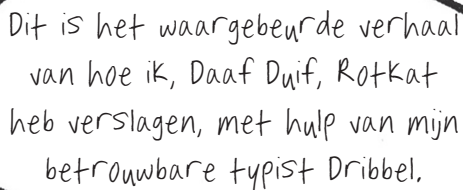 Dit is het waargebeurde verhaal
van hoe ik, Daaf Duif, RotKat
heb verslagen, met hulp van mijn
betrouwbare typist Dribbel.